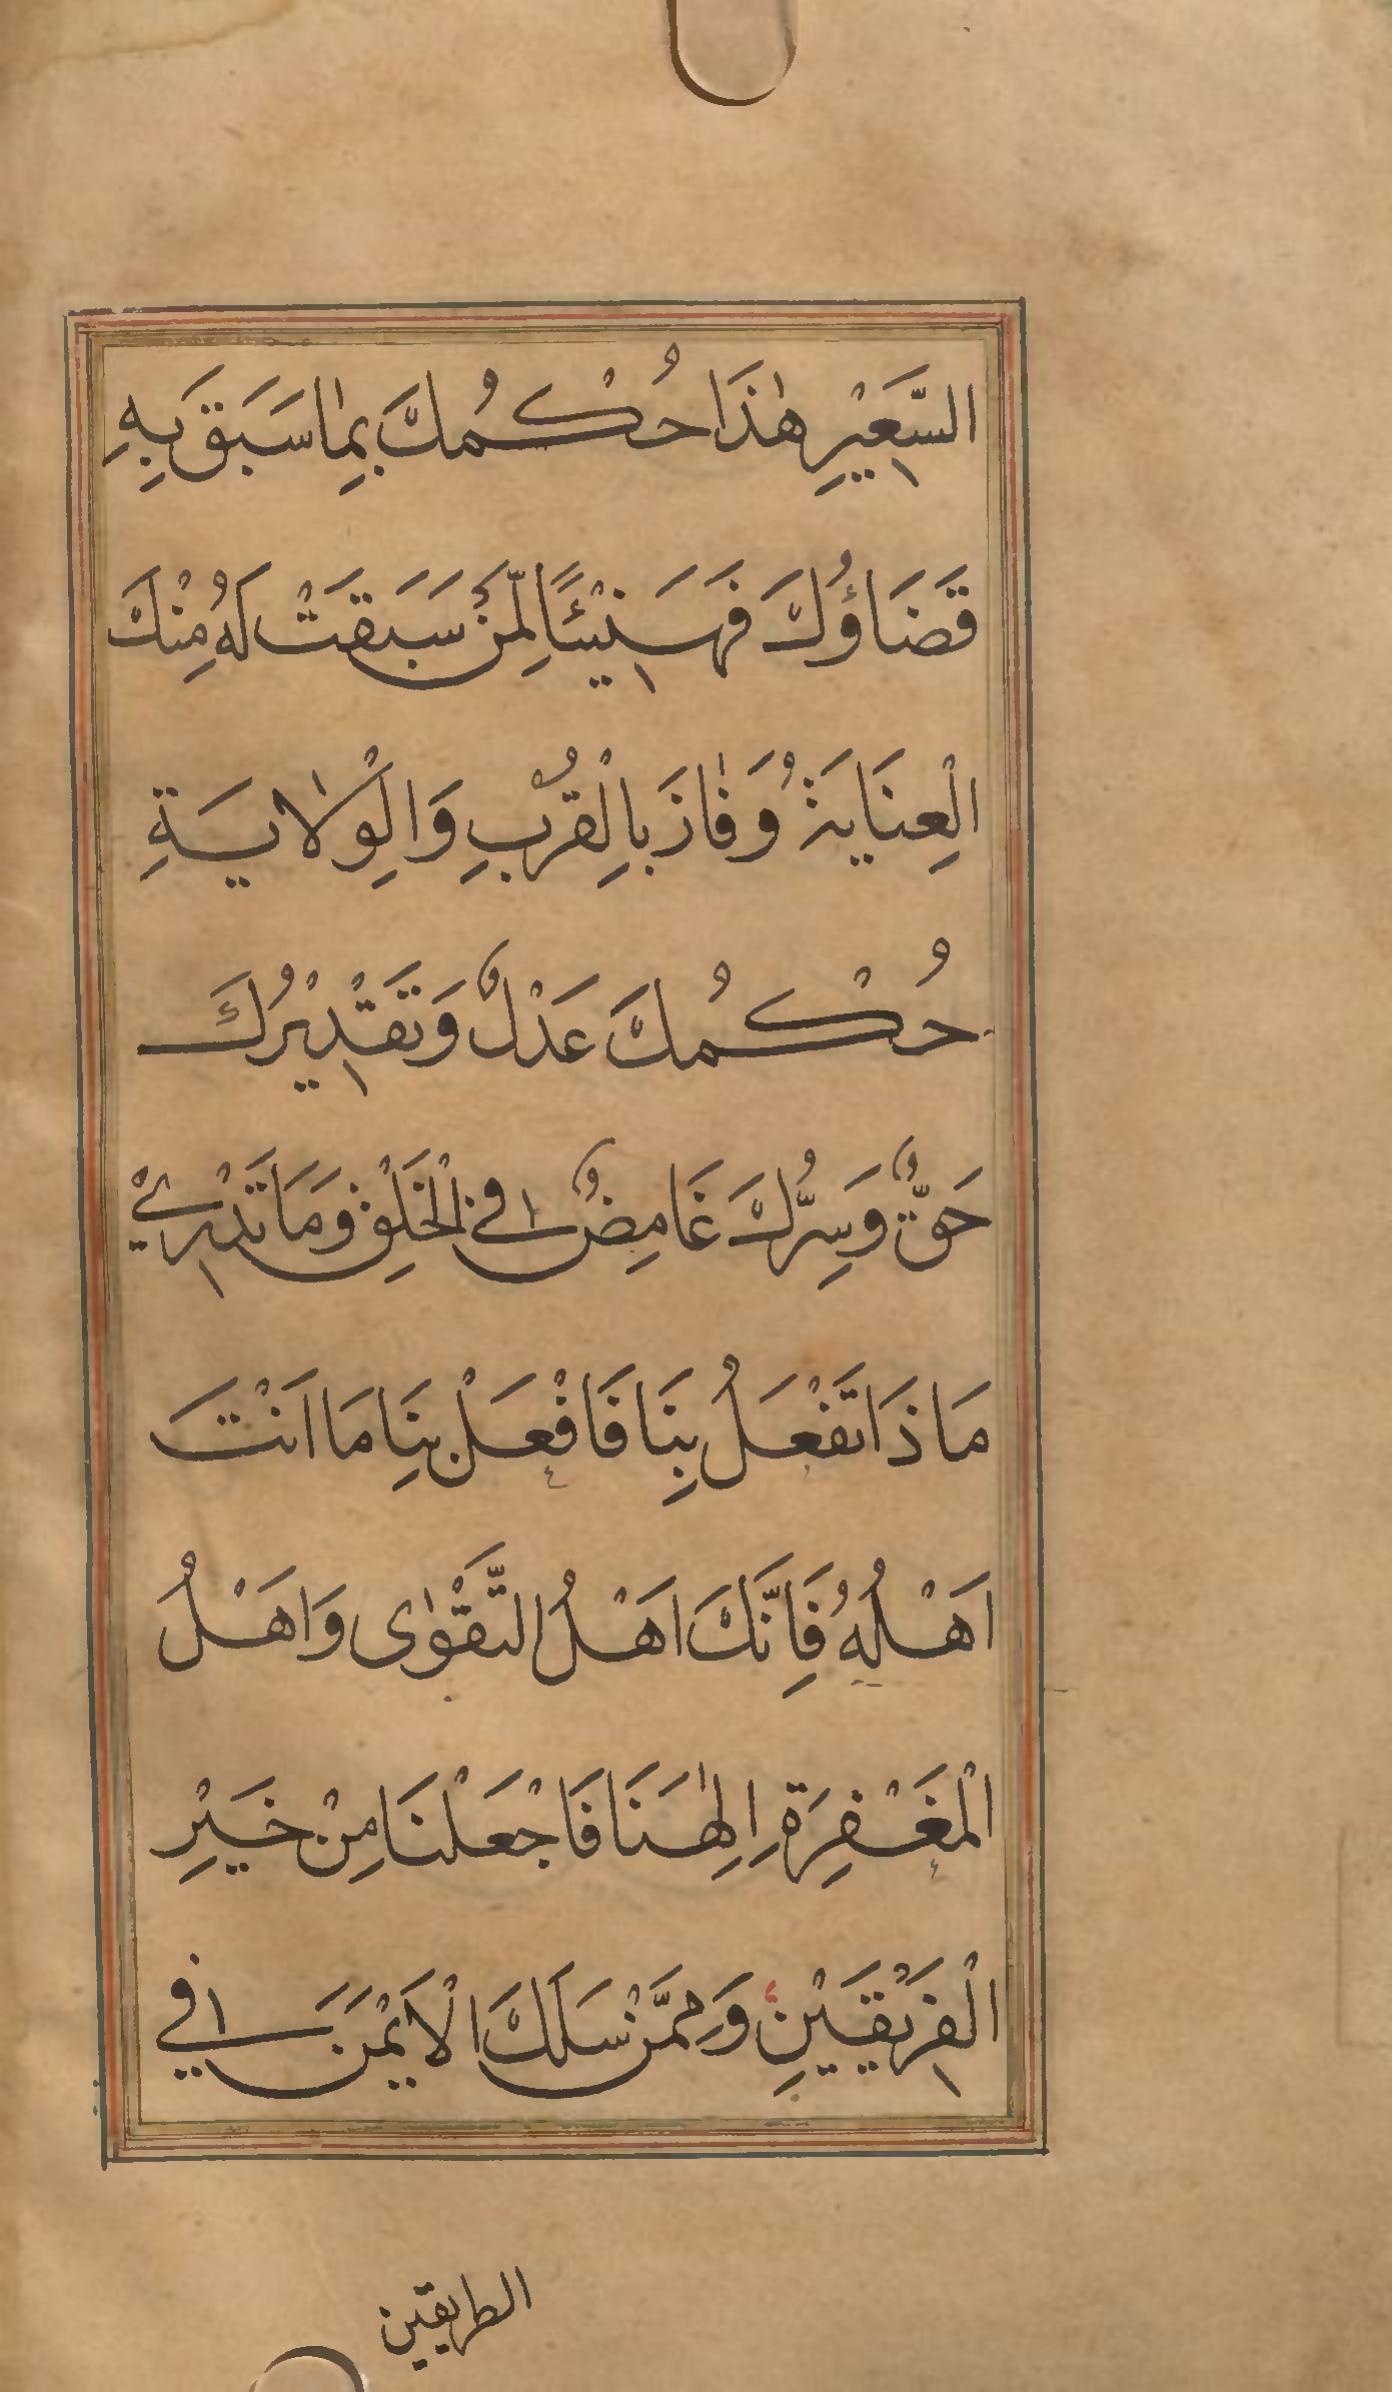 السَّعِيْرِ هٰذَا حُكْمُكَ بِمَا سَبَقَ بِهِ
قَضَاؤُكَ فَهَنِيْئًا لِّمَنْ سَبَقَتْ لَهُ مِنْكَ
الْعِنَايَةُ وَفَازَ بِالْقُرْبِ وَالْوِلَايَةِ
حُكْمُكَ عَدْلٌ وَتَقْدِيْرُكَ
حَقٌّ وَسِرُّكَ غَامِضٌ فِي الْخَلْقِ وَمَا نَدْرِيْ
مَاذَا تَفْعَلُ بِنَا فَافْعَلْ بِنَا مَا اَنْتَ
اَهْلُهُ فَاِنَّكَ اَهْلُ التَّقْوٰى وَاَهْلُ
الْمَغْفِرَةِ اِلٰهَنَا فَاجْعَلْنَا مِنْ خَيْرِ
الْفَرِيْقَيْنِ وَمِمَّنْ سَلَكَ الْاَيْمَنَ فِي
الطريقين